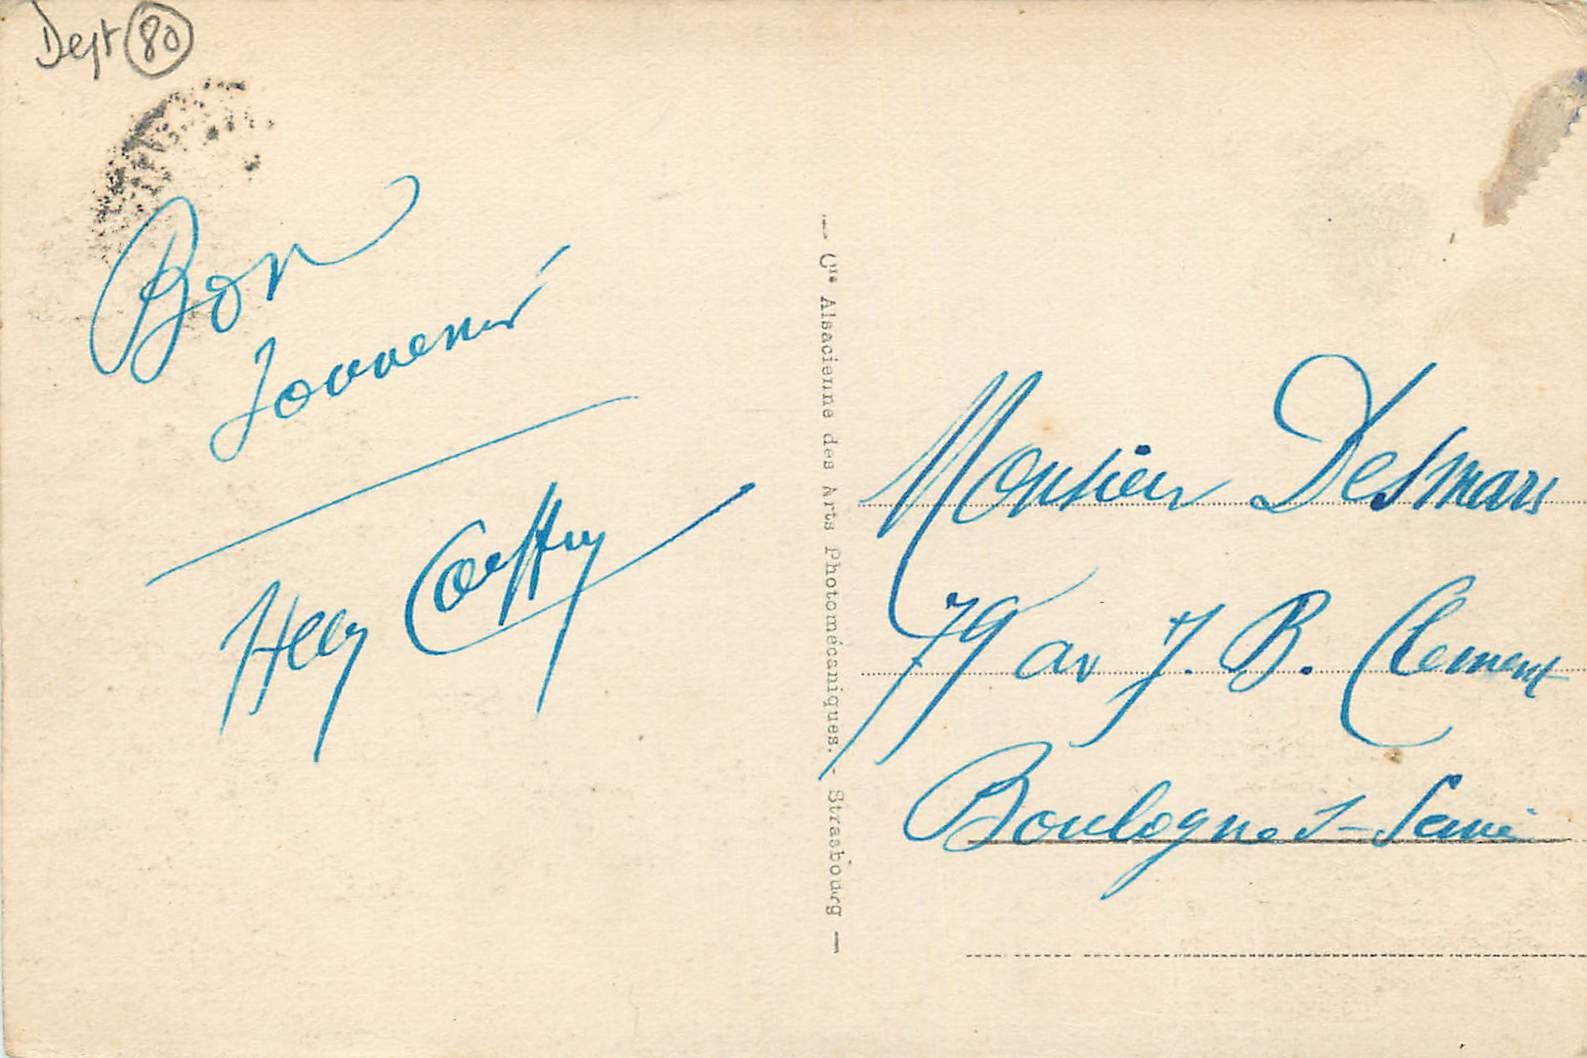 Dept 80
Bon
Souvenir
— Cie Alsacienne des Arts Photomécaniques. - Strasbourg —
Monsieur Desmars
79 av J. B. Clement
Boulogne s-Seine